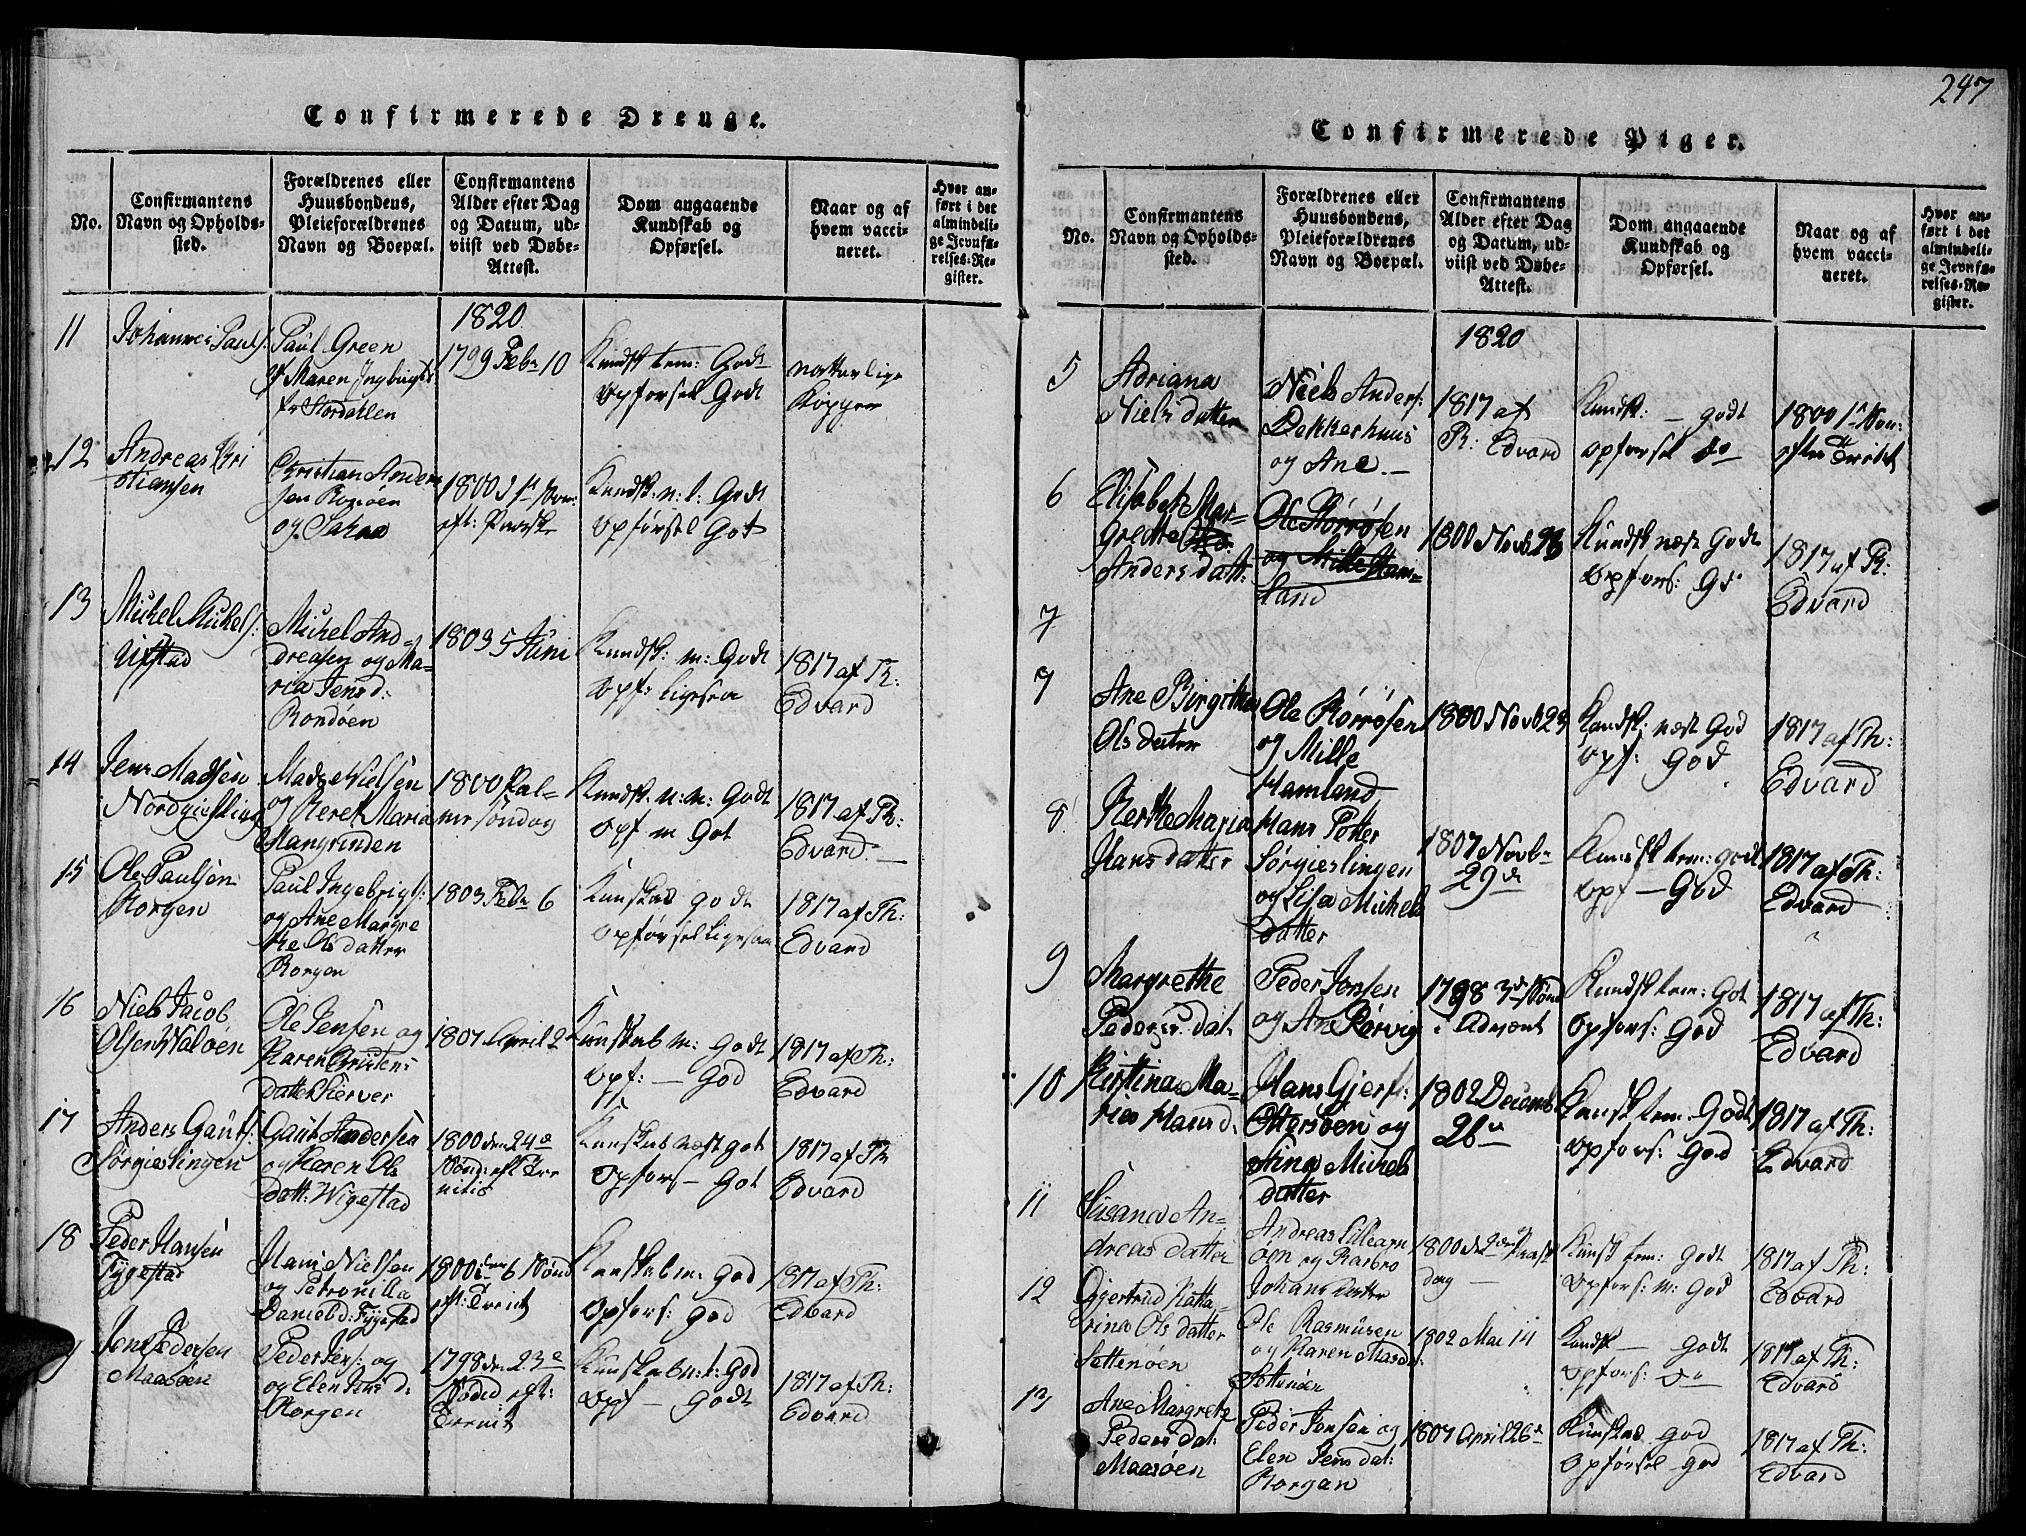 247
Confirmerede Drenge.
No.
Confirmantens
Navn og Opholds-
sted.
Forældrenes eller
Huusbondens,
Pleieforældrenes
Navn og Boepæl.
Confirmantens
Alder efter Dag
og Datum, ud-
viist ved Døbe-
Attest.
Dom angaaende
Kundskab og
Opførsel.
Naar og af
hvem vacci-
neret.
Hvor an-
ført i det
almindeli-
ge Jevnfø-
relses-Re-
gister.
1820
11
Johannes Pauls:
Paul Green
Maren
1799 Feb 10
Kundsk tem: Godt
opforsel Godt
Kopper
12
Andreas Kri
stiansen
Christian Anders
sen
og
1800
Kundsk: n: t: Godt
opførsel Got
13
Michel Michels:
Michel And-
dreasen og Ma-
ria Jensd:
Rondøen
1803 5 Juni
Kundsk: m: Godt
opf: ligesaa
1817 af Th:
Edvard
14
Jens Madsen
Mads Nielsen
og Maria
Mangrinden
1800 Pal-
me søndag
Kundsk: m: Godt
opf m Got
1817 af Th:
Edvard
15
Ole Paulsøn
Korgen
Paul Ingebrigts:
og Ane Margre
the Olsdatter
Korgen
1803 Feb 6
Kunskab godt
opførsel ligesaa
1817 af Th:
Edvard
16
Niels Jacob
Olsen Valøen
Ole Jensen og
Karen
datter
1807 April 2
Kunskab m: Godt
opf: — God
1817 af Th:
Edvard
17
Anders Gauts:
Sørgieslingen
Gaut Andersen
og Karen Ols
datt: Wigestad
1800 den 24de
Sønd: eft Tre
nitis
Kunskab næst got
opfors — Got
1817 af Th
Edvard
18
Peder Hansen
Fygestad
Hans Nielsen
og Petronilla
Danields: Fygestad
1800 den 6 Sønd
eft: Trenit
Kunskab m: God
opfors: God
1817 af Th:
Edvard
Jens Pedersen
Maasøen
Peder Jens: og
og Elen Jens d:
Korgen
1798 den 23de
Søndd eft:
Trenit
Kunskab n: t: God
opf — Godt
1817 af Th:
Edvard
Confirmerede Piger.
No.
Confirmantens
Navn og Opholds-
sted.
Forældrenes eller
Huusbondens,
Pleieforældrenes
Navn og Boepæl.
Confirmantens
Alder efter Dag
og Datum, ud-
viist ved Døbe-
Attest.
Dom angaaende
Kundskab og
Opførsel.
Naar og af
hvem vacci-
neret.
Hvor an-
ført i det
almindeli-
ge Jevnfø-
relses-Re-
gister.
1820
5
Adriana
Niels datter
Niels Anders:
Dekkerhuus
og Ane. —
1817 af
Th: Edvard
Kundsk: — godt
opforsel do
1800
6
Elisabeth Mar-
grethe
Anders datt:
Ole Rørrøsen
og Mille Ham-
land
1800 Novb 23
Kundsk næst Godt
opfors: Gd
1817 af Th:
Edvard
7
7
Ane Birgitha
Ols datter
Ole Rørrøsen
og Mille
Hamland
1800 Novb 23
Kundsk: næst God
opf: God
1817 af Th:
Edvard
8
Merthe Maria
Hans datter
Hans Potter
Sørgieslingen
og Lisa Michels
datter
1807 Novbr
29de
Kundsk tem: godt
opf — God
1817 af Th:
Edvard
9
Margrethe
Peders dat
Peder Jonsen
og Ane Rørvig
1798 3de Sønd
i Advent
Kundsk tem: Got
opfors: God
1817 af Th:
Edvard
10
Kirstina Ma-
ria Hans d.
Hans Gjers:
Ottersøen og
Stina Michels
datter
1802 Decemb
26
Kunsk tem: Godt
opfors: God
1817 af Th:
Edvard
11
Susana An-
dreas datter
Andreas Lillearn
øen og Barbro
Johans datter
1800 d 2den Paaske
dag —
Kunsk tem: Godt
opfors: m: God
1817 af Th:
Edvard
12
Gjertrud Katta-
rina Ols datter
Søttenøen
Ole Rasmusen
og Karen Mads
1802 Mai 14
Kundsk — Godt
opfors: do
1817 af Th:
Edvard
13
Ane Margrete
Peders dat:
Maasøen
Peder Jensen og
Elen Jens dat:
Korgan
1807 April 26de
Kunskab God
opførsel God
1817 af Th:
Edvard